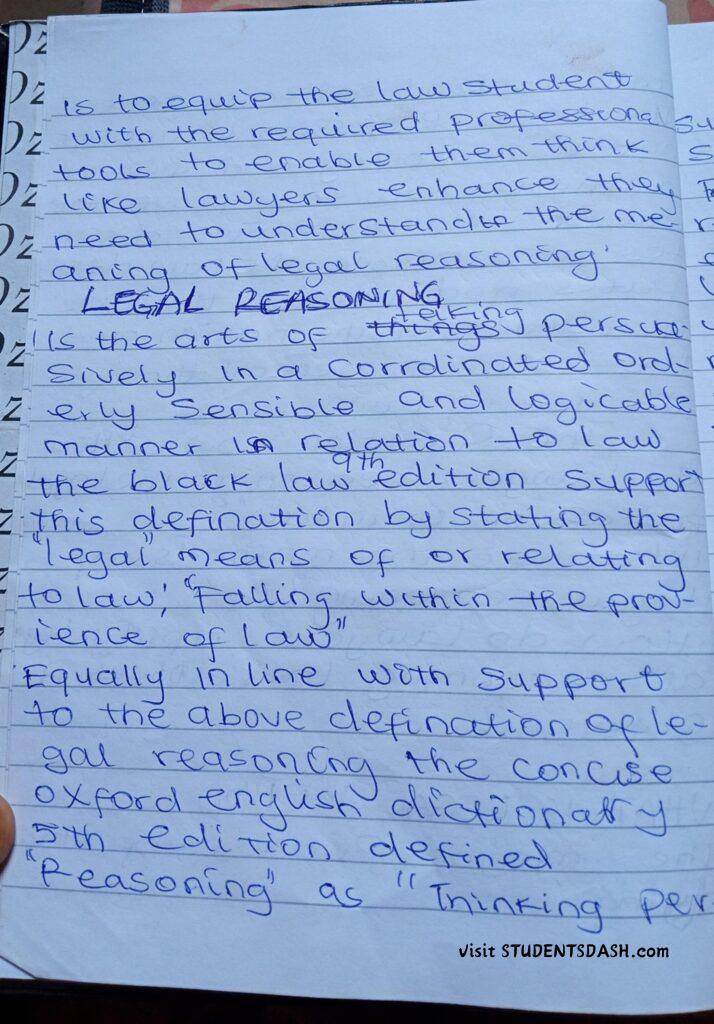 is to equip the law student
with the required professional
tools to enable them think
like lawyers enhance they
need to understand the me-
aning of legal reasoning.
LEGAL REASONING
Is the arts of things talking persua-
sively in a corrdinated ord-
erly sensible and logicable
manner in relation to law
the black law 9th edition support
this defination by stating the
"legal" means of or relating
to law; "Falling within the prov-
ience of law"
Equally in line with support
to the above defination of le-
gal reasoning the concise
oxford english dictionary
5th edition defined
"Reasoning" as "Thinking per
Visit STUDENTSDASH.com